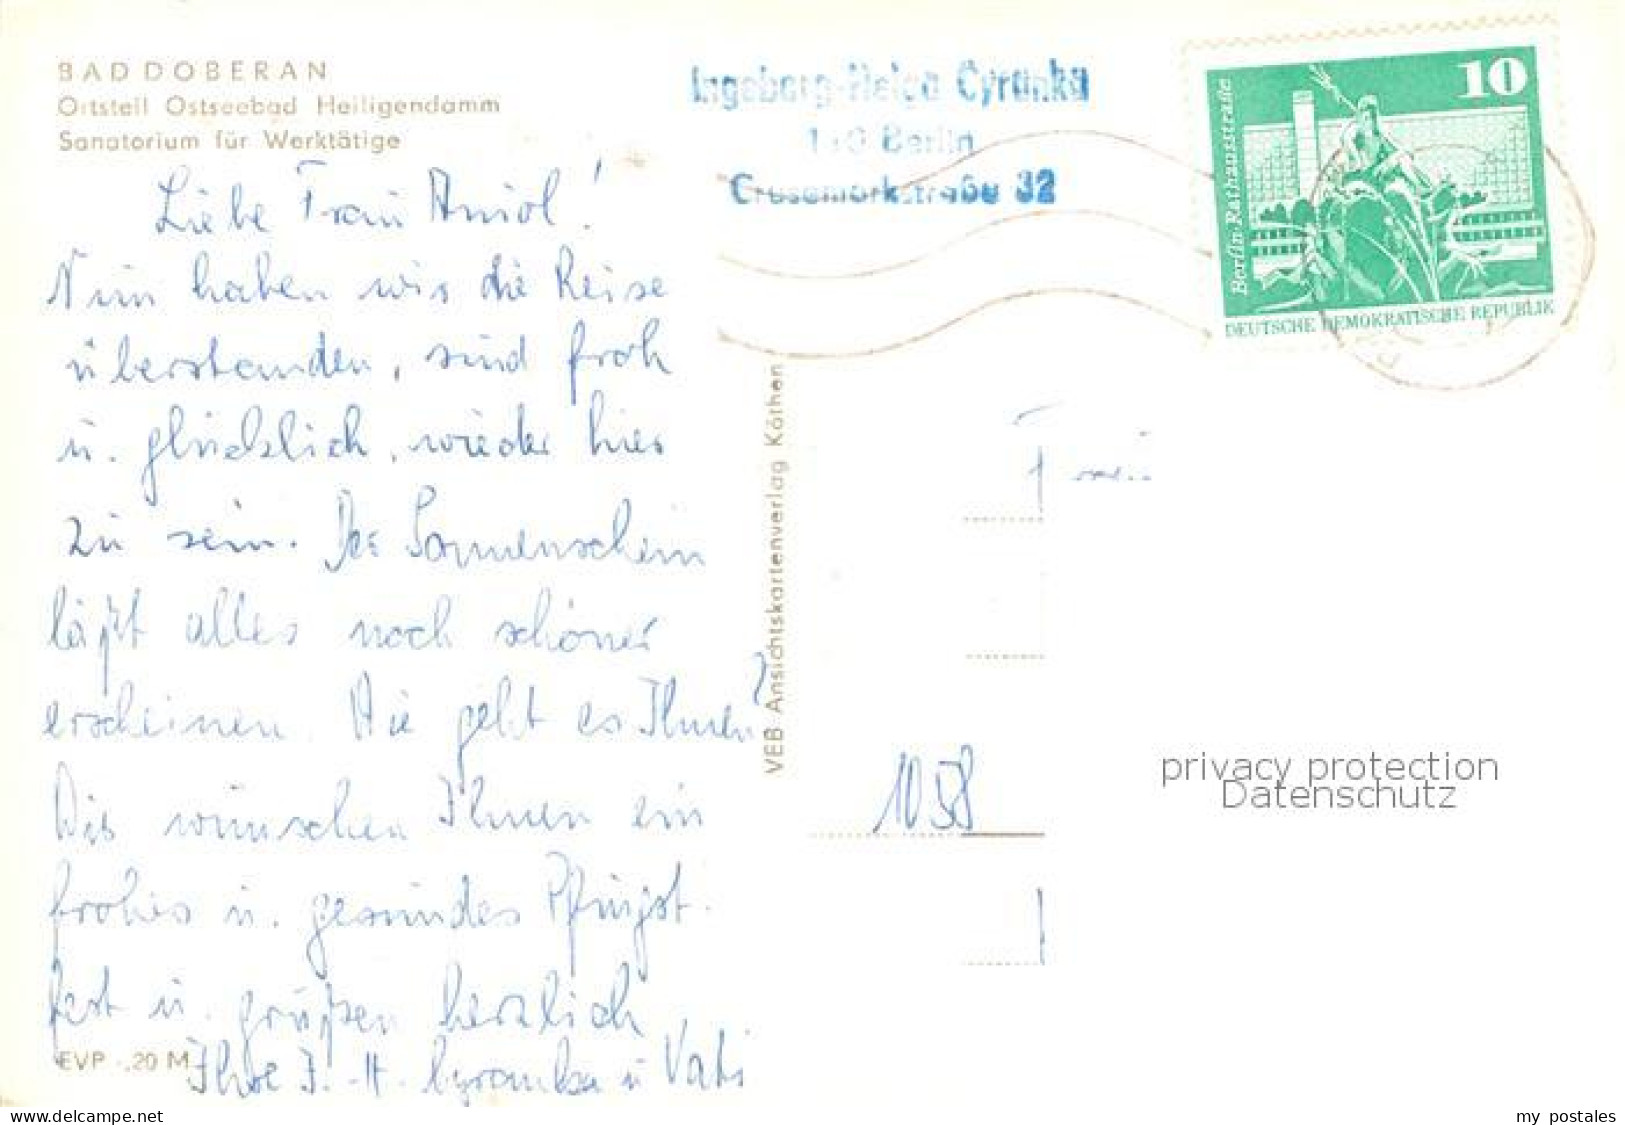 BAD DOBERAN
Ortsteil Ostseebad Heiligendamm
Sanatorium für Werktätige
Liebe Frau Aniol!
Nun haben wir die Reise
überstanden, sind froh
u. glücklich, wieder hier
zu sein. Der Sonnenschein
läßt alles noch schöner
erscheinen. Wie geht es Ihnen?
Wir wünschen Ihnen ein
frohes u. gesundes Pfingst-
fest u. grüßen herzlich
Ihre I.-H. Cyranka u Vati
EVP -,20 M
VEB Ansichtskartenverlag Köthen
Ingeborg-Helga Cyranka
Berlin
32
10
Berlin Rathausstraße
DEUTSCHE DEMOKRATISCHE REPUBLIK
Frau
1058
privacy protection
Datenschutz
www.delcampe.net
my_postales